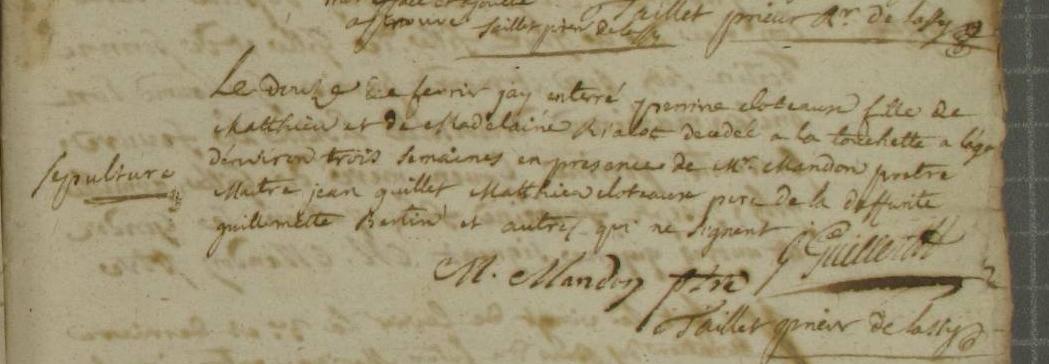 approuvé Taillet prieur de Lassy Taillet prieur Rr. de Lassy
Sepulture
Le douze de fevrier jay enterré perrine cloteause fille de
Matthieu et de Madelaine decedé a la touchette a lage
denviron trois semaines en presance de Mr. Mandon prebtre
Maitre jean guillet Matthieu cloteause pere de la deffunte
guillemette Bertin et autres qui ne signent
M. Mandon ptre
Taillet prieur de Lassy